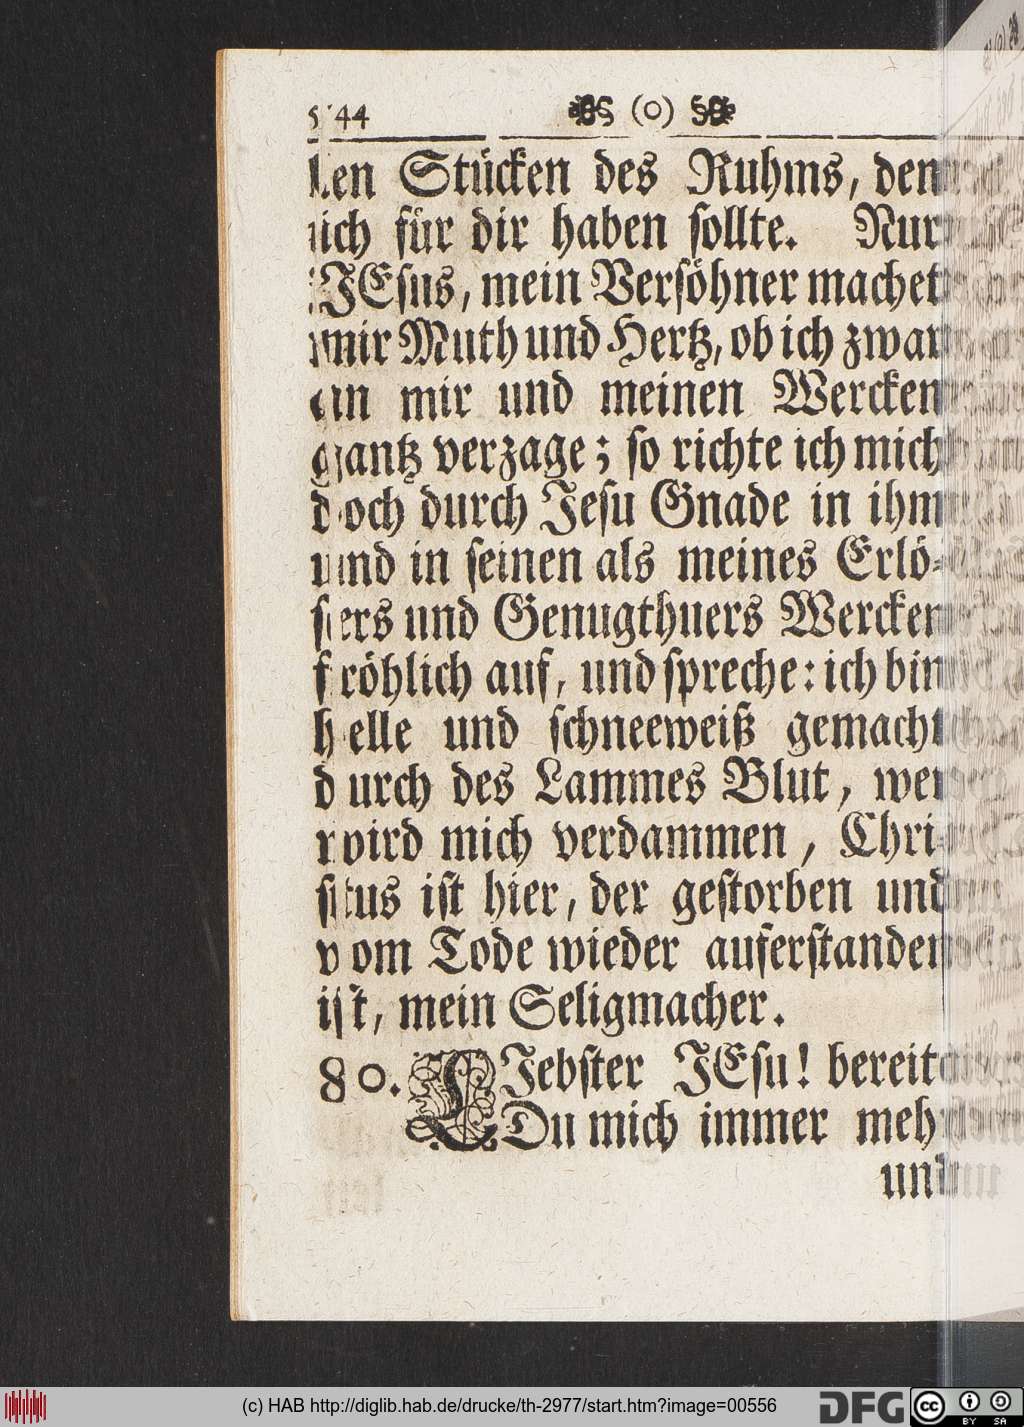 544 (o)
len Stücken des Ruhms, den
ich für dir haben sollte. Nur
JEsus, mein Versöhner machet
mir Muth und Hertz, ob ich zwar
an mir und meinen Wercken
gantz verzage; so richte ich mich
doch durch Jesu Gnade in ihm
und in seinen als meines Erlö-
sers und Genugthuers Wercken
fröhlich auf, und spreche: ich bin
helle und schneeweiß gemacht
durch des Lammes Blut, wer
wird mich verdammen, Chri-
stus ist hier, der gestorben und
vom Tode wieder auferstanden
ist, mein Seligmacher.
80. LIebster JEsu! bereite
Du mich immer mehr
und
(c) HAB http://diglib.hab.de/drucke/th-2977/start.htm?image=00556
DFG cc BY SA